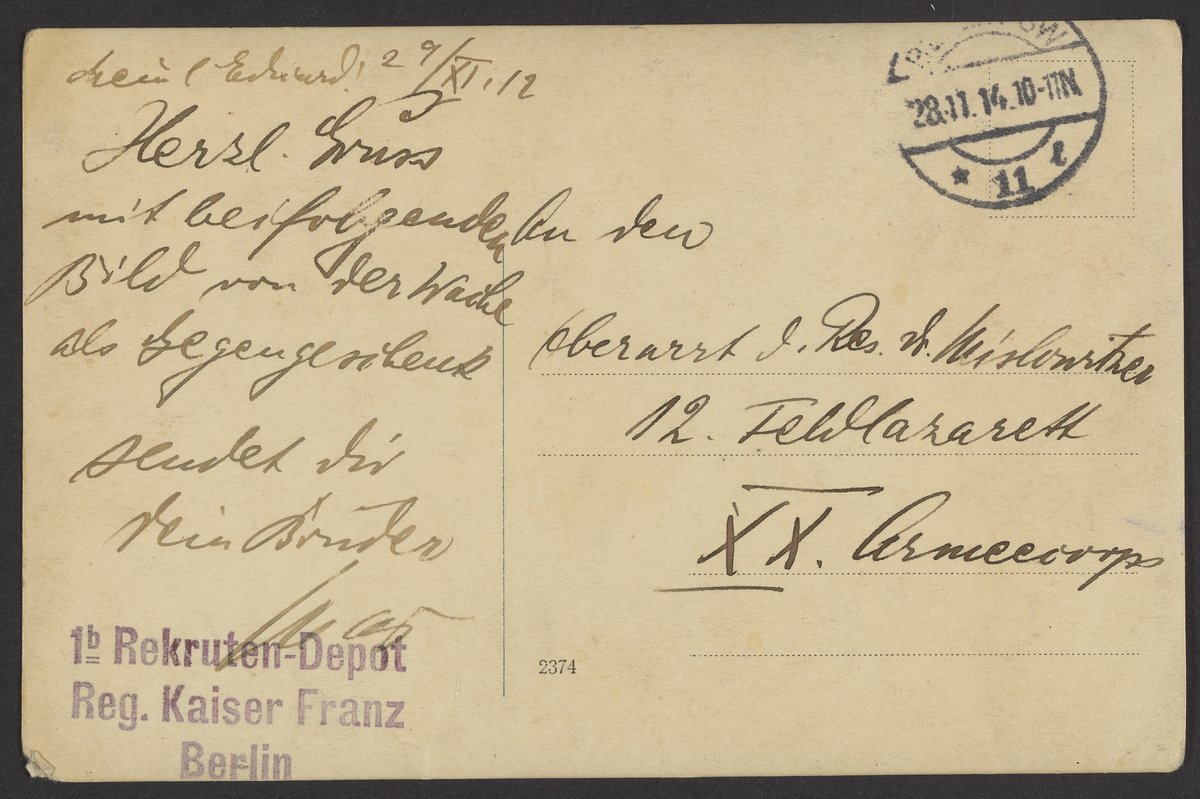 Lieni l Eduard! 29/XI. 12
Herzl. Gruss
mit beifolgenden
Bild von der Wache
als Gegengeschenk
sendet dir
Dein Bruder
Max
1b Rekruten-Depot
Reg. Kaiser Franz
Berlin
28.11.14.10-11N
* 11 l
An den
Oberarzt d. Res. Dr. Mislowitzer
12. Feldlazarett
XX. Armeecorps
2374